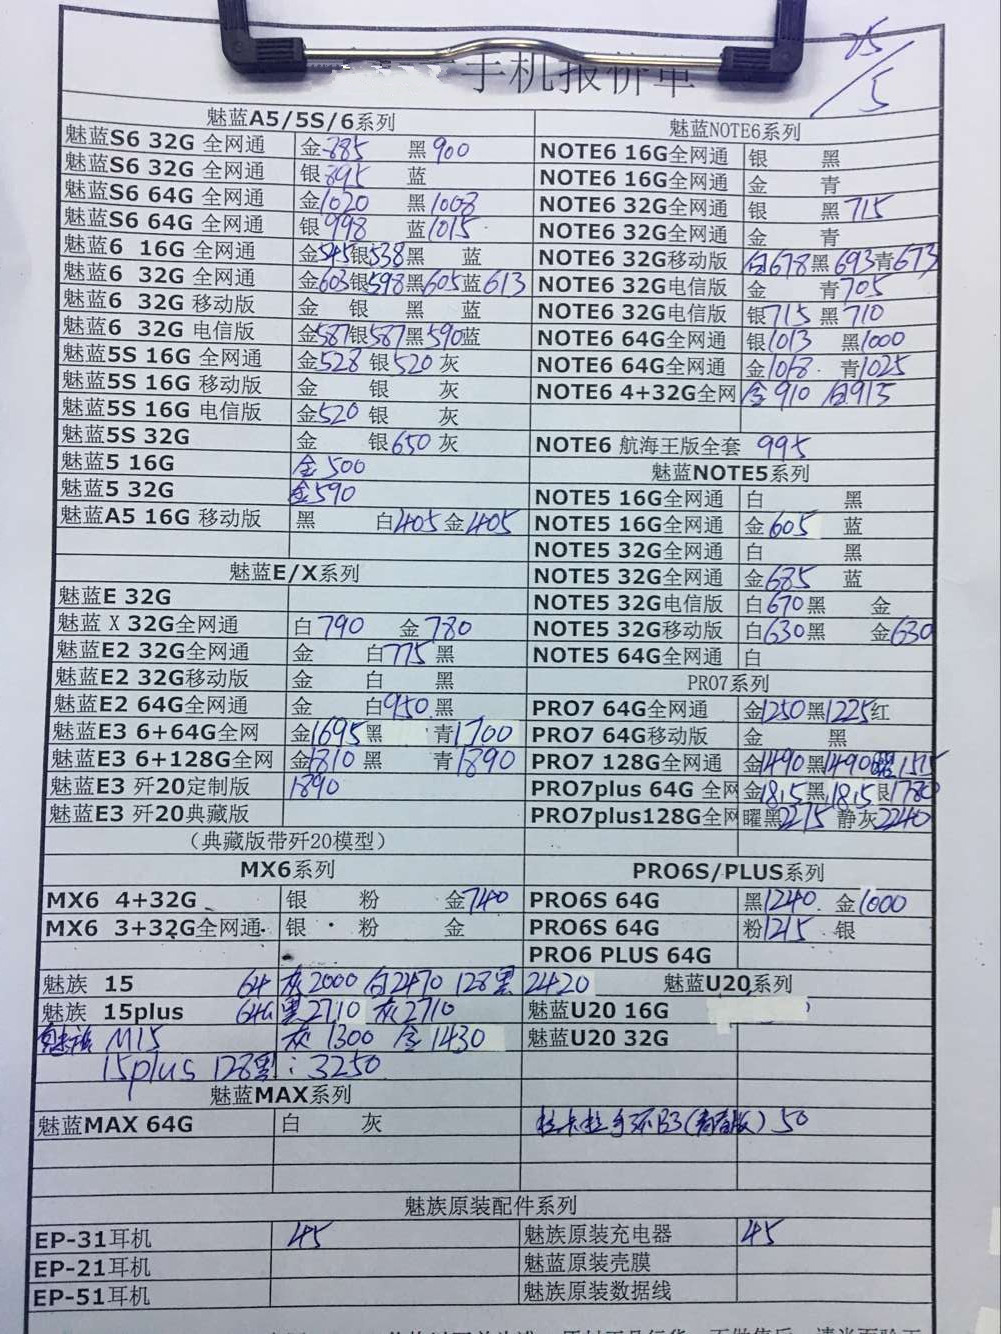 手机报价单
25/5
魅蓝A5/5S/6系列
魅蓝S6 32G 全网通 金885 黑900
魅蓝S6 32G 全网通 银895 蓝
魅蓝S6 64G 全网通 金1020 黑1008
魅蓝S6 64G 全网通 银998 蓝1015
魅蓝6 16G 全网通 金545银538黑 蓝
魅蓝6 32G 全网通 金603银598黑605蓝613
魅蓝6 32G 移动版 金 银 黑 蓝
魅蓝6 32G 电信版 金587银587黑590蓝
魅蓝5S 16G 全网通 金528 银520 灰
魅蓝5S 16G 移动版 金 银 灰
魅蓝5S 16G 电信版 金520 银 灰
魅蓝5S 32G 金 银650 灰
魅蓝5 16G 金500
魅蓝5 32G 金590
魅蓝A5 16G 移动版 黑 白405 金405
魅蓝E/X系列
魅蓝E 32G
魅蓝X 32G全网通 白790 金780
魅蓝E2 32G全网通 金 白775 黑
魅蓝E2 32G移动版 金 白 黑
魅蓝E2 64G全网通 金 白950 黑
魅蓝E3 6+64G全网 金1695黑 青1700
魅蓝E3 6+128G全网 金1810 黑 青1890
魅蓝E3 歼20定制版 1890
魅蓝E3 歼20典藏版
（典藏版带歼20模型）
MX6系列
MX6 4+32G 银 粉 金740
MX6 3+32G全网通 银 粉 金
魅族 15 64 灰2000 白2470 128黑 2420
魅族 15plus 64G 黑2710 灰2710
魅族 M15 灰 1300 金 1430
15plus 128黑：3250
魅蓝MAX系列
魅蓝MAX 64G 白 灰
魅蓝NOTE6系列
NOTE6 16G全网通 银 黑
NOTE6 16G全网通 金 青
NOTE6 32G全网通 银 黑715
NOTE6 32G全网通 金 青
NOTE6 32G移动版 白678黑693青673
NOTE6 32G电信版 金 青705
NOTE6 32G电信版 银715 黑710
NOTE6 64G全网通 银1013 黑1000
NOTE6 64G全网通 金1018 青1025
NOTE6 4+32G全网 金910 白915
NOTE6 航海王版全套 995
魅蓝NOTE5系列
NOTE5 16G全网通 白 黑
NOTE5 16G全网通 金605 蓝
NOTE5 32G全网通 白 黑
NOTE5 32G全网通 金685 蓝
NOTE5 32G电信版 白670黑 金
NOTE5 32G移动版 白630黑 金630
NOTE5 64G全网通 白
PRO7系列
PRO7 64G全网通 金1250黑1225红
PRO7 64G移动版 金 黑
PRO7 128G全网通 金1490黑1490
PRO7plus 64G 全网 金1815黑1815银1780
PRO7plus128G全网 曜黑2215 静灰2240
PRO6S/PLUS系列
PRO6S 64G 黑1240 金1000
PRO6S 64G 粉1215 银
PRO6 PLUS 64G
魅蓝U20系列
魅蓝U20 16G
魅蓝U20 32G
拉卡拉手环B3(青春版) 50
魅族原装配件系列
EP-31耳机 45 魅族原装充电器 45
EP-21耳机 魅蓝原装壳膜
EP-51耳机 魅族原装数据线